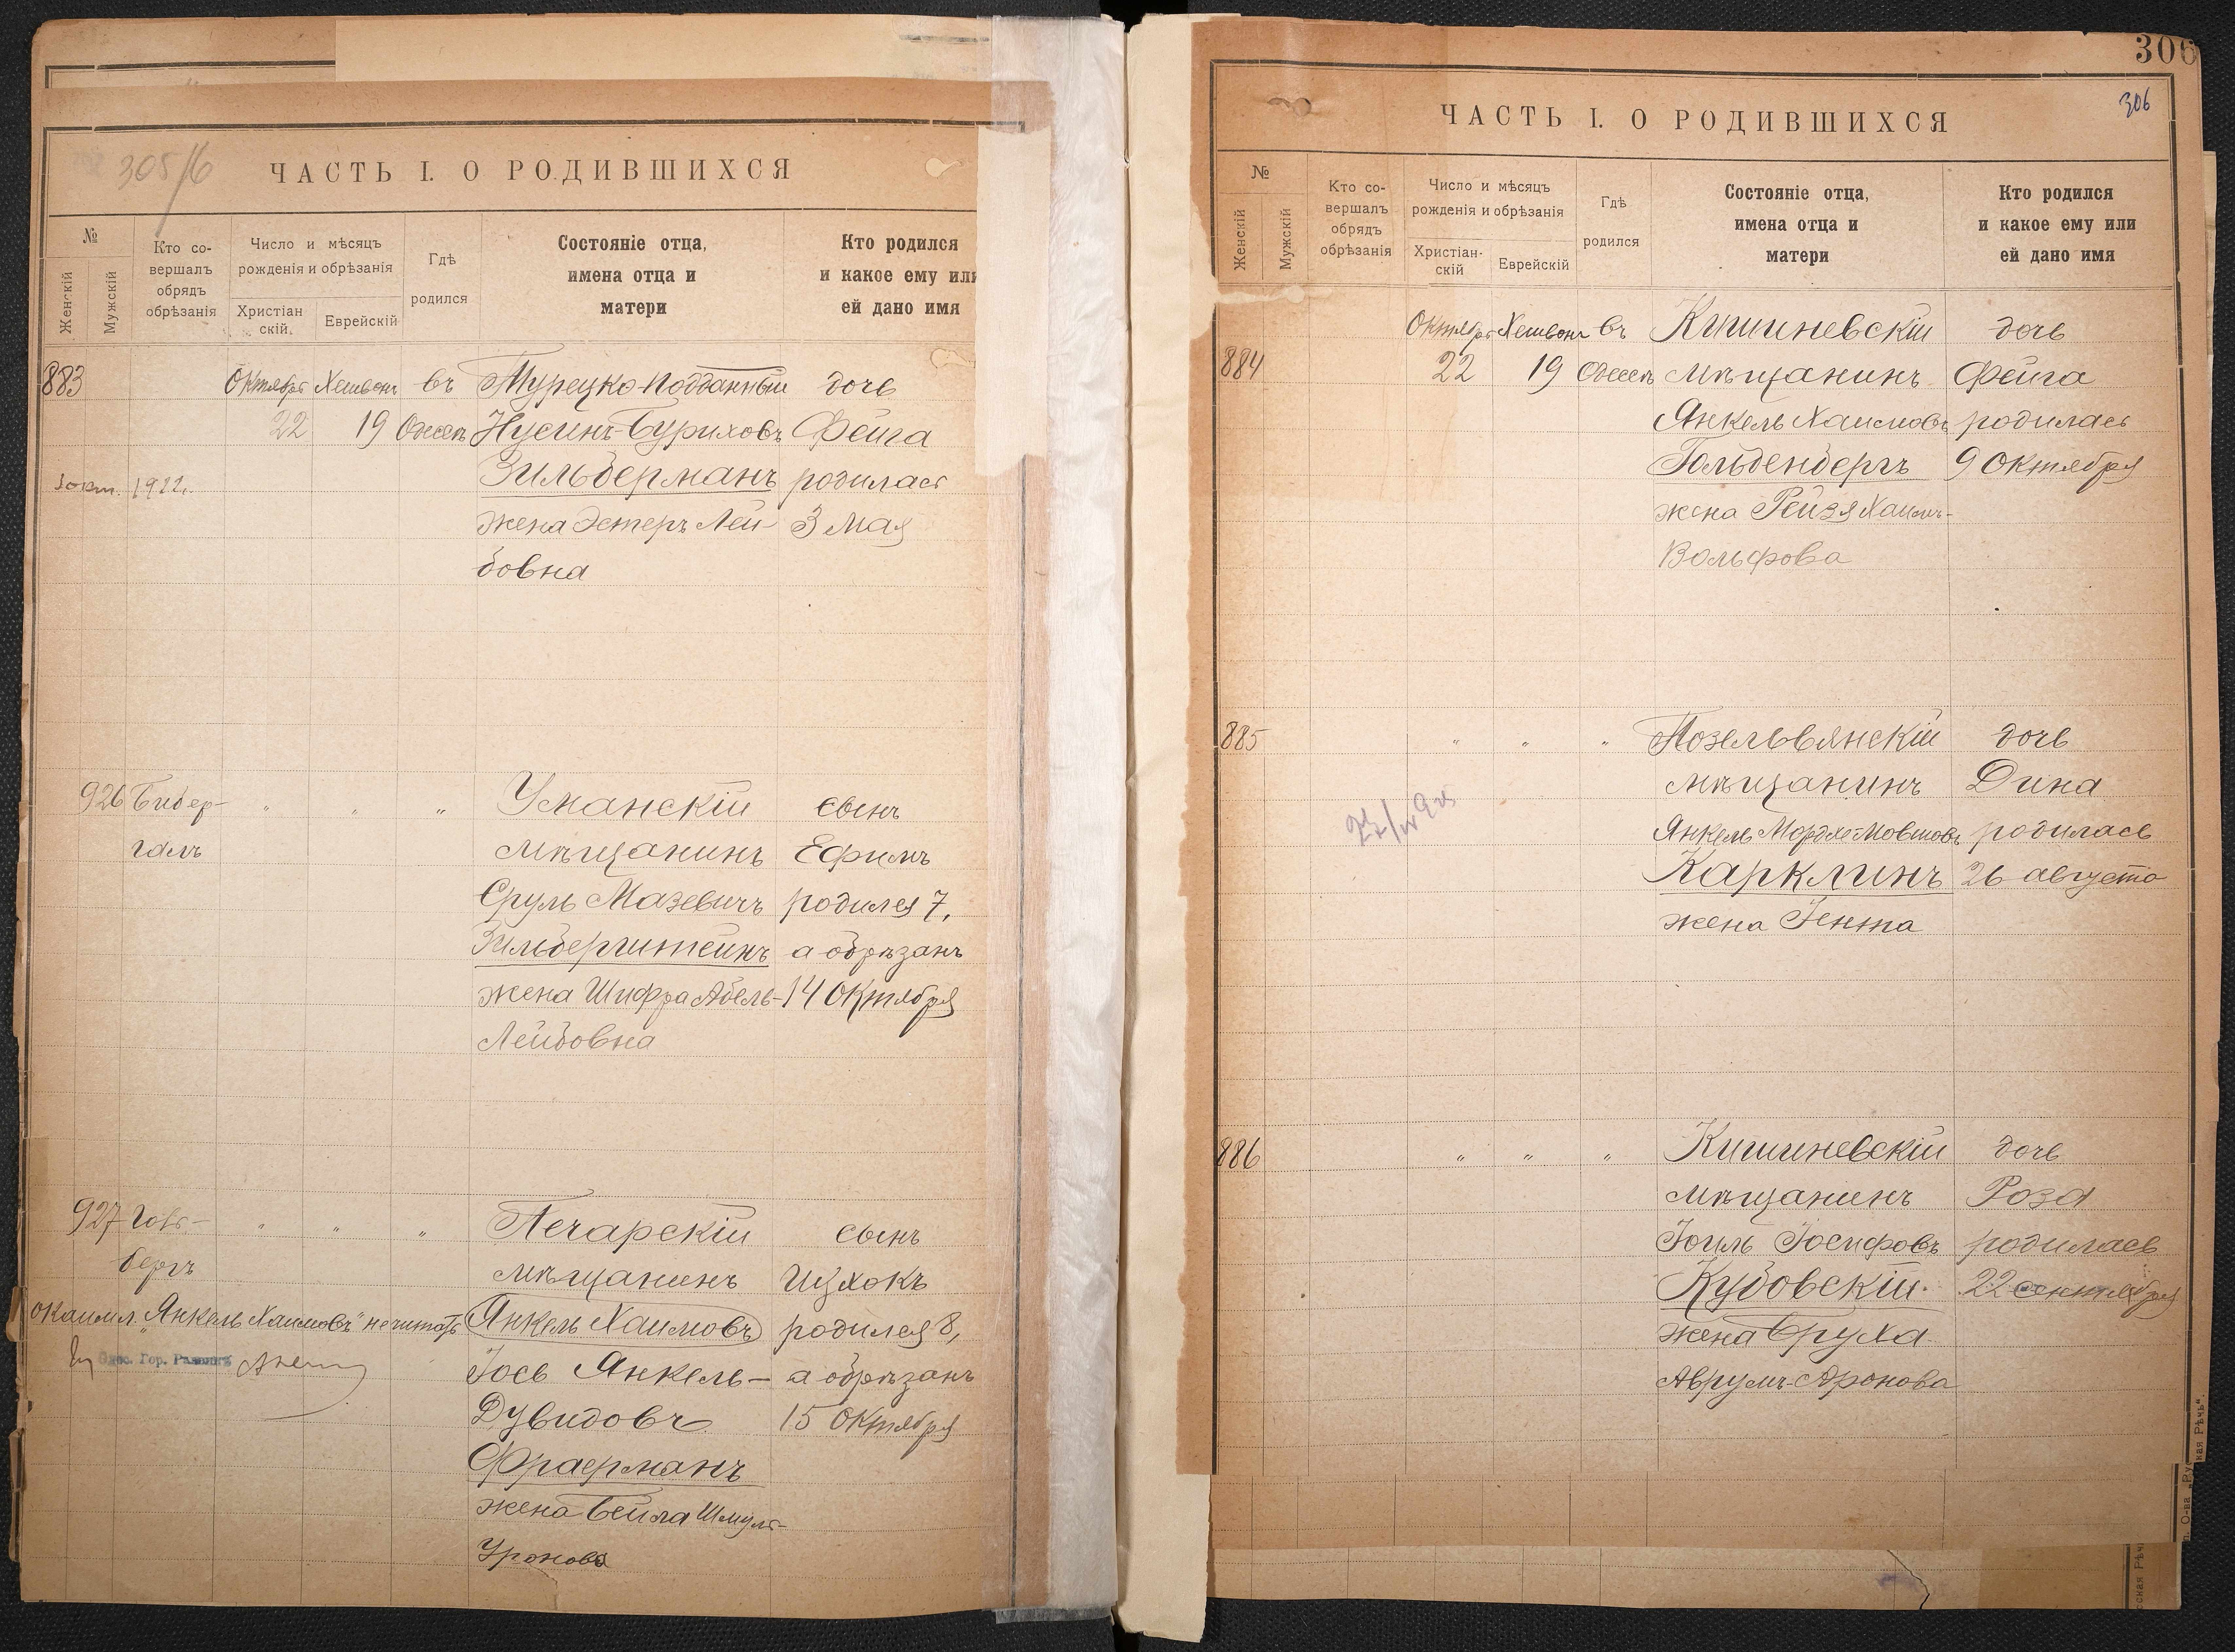 305/б
ЧАСТЬ I. О РОДИВШИХСЯ
№
Женскій
Мужскій
Кто со-
вершалъ
обрядъ
обрѣзанія
Число и мѣсяцъ
рожденія и обрѣзанія
Христіан
скій.
Еврейскій
Гдѣ
родился
Состояніе отца,
имена отца и
матери
Кто родился
и какое ему или
ей дано имя
883 Октября Хешвонъ въ Турецко-подданный дочь
22 19 Одессѣ Нусинъ-Буриховъ Фейга
1922 г. Зильберманъ родилась
жена Эстеръ Лей- 3 Мая
бовна
926 Бидер- " " " Уманскій сынъ
галъ мѣщанинъ Ефимъ
Сруль Мазевичъ родился 7,
Зильберштейнъ а обрѣзанъ
жена Шифра Абель- 14 Октября
Лейбовна
927 " " " Печарскій сынъ
бергъ мѣщанинъ Ицхокъ
"Янкель Хаимовъ" не читать Янкель Хаимовъ родился 8,
Гор. Раввинъ Іось Янкель- а обрѣзанъ
Дувидовъ 15 Октября
Фраерманъ
жена Бейла Шмуль-
Уронова
306
306
ЧАСТЬ I. О РОДИВШИХСЯ
№
Женскій
Мужскій
Кто со-
вершалъ
обрядъ
обрѣзанія
Число и мѣсяцъ
рожденія и обрѣзанія
Христіан-
скій
Еврейскій
Гдѣ
родился
Состояніе отца,
имена отца и
матери
Кто родился
и какое ему или
ей дано имя
Октября Хешвонъ въ Кишиневскій дочь
884 22 19 Одессѣ мѣщанинъ Фейга
Янкель Хаимовъ родилась
Гольденбергъ 9 Октября
жена Рейзя Хаимъ-
Вольфова
885 " " " Позельвянскій дочь
мѣщанинъ Дина
Янкель Мордхо-Мовшовъ родилась
Карклинъ 26 августа
жена Гента
886 " " " Кишиневскій дочь
мѣщанинъ Роза
Іоиль Іосифовъ родилась
Кубовскій. 22 сентября
жена Бруха
Аврумъ-Аронова